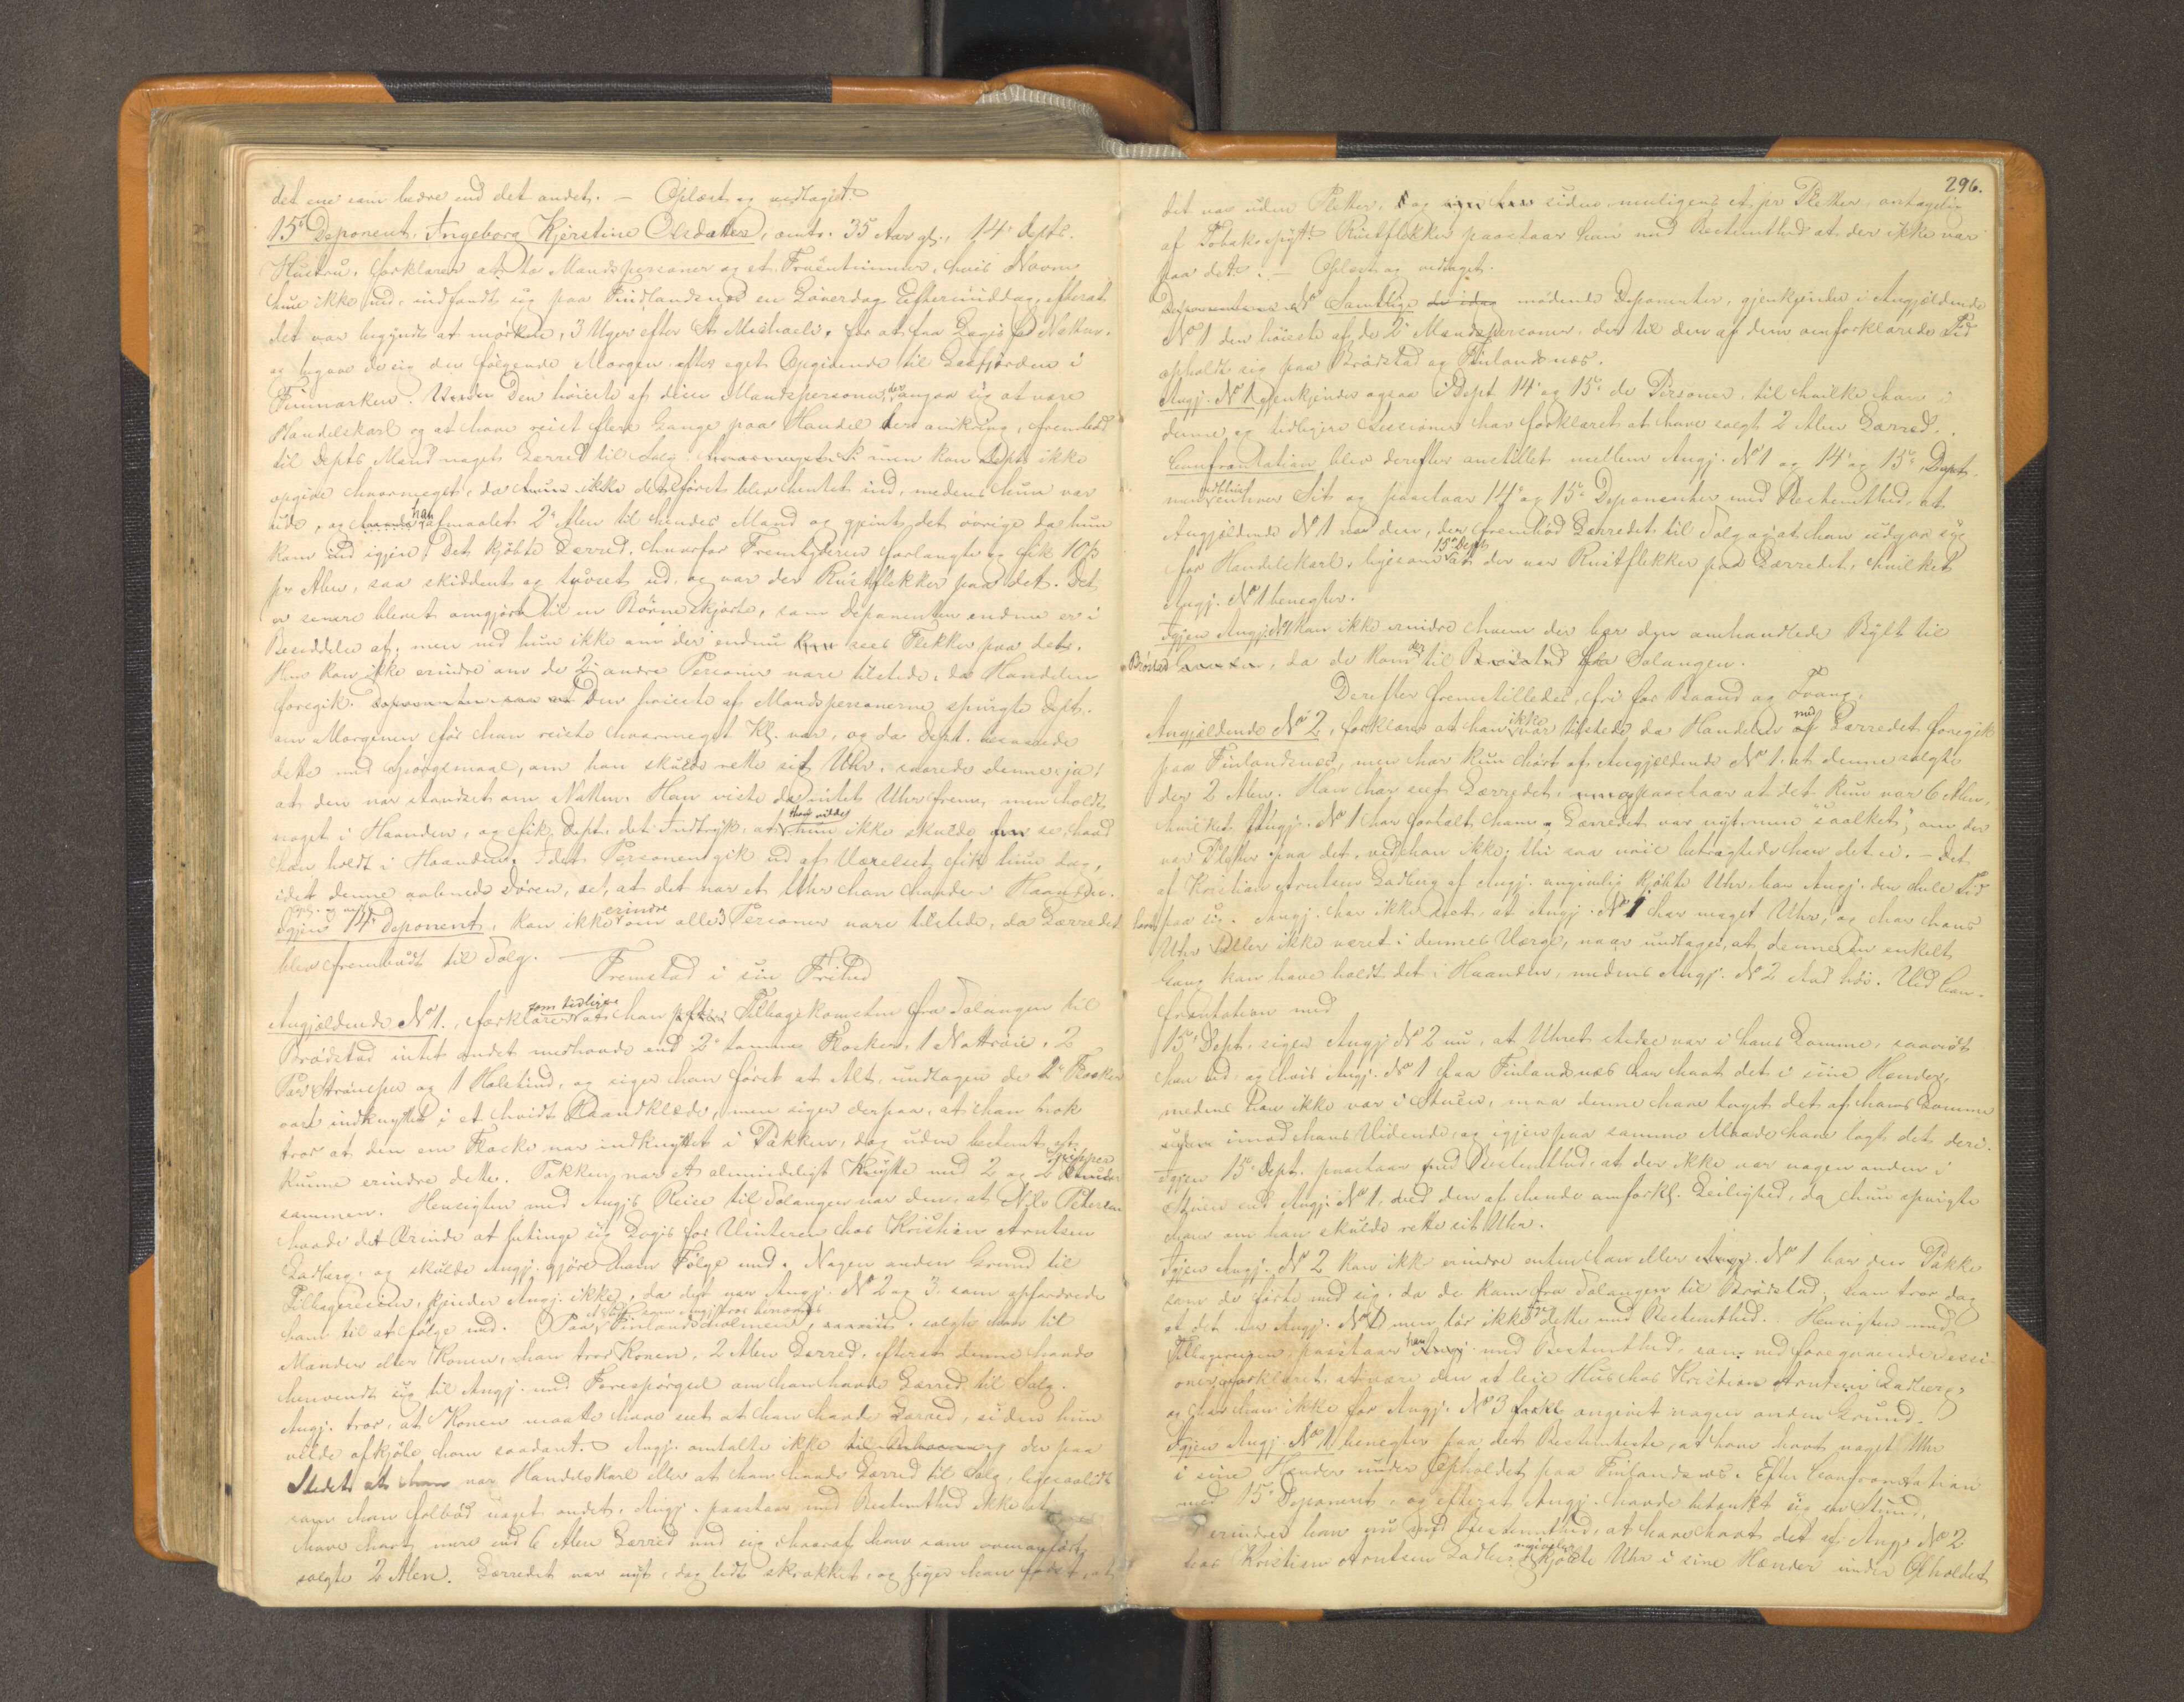 det ene som bedre end det andet. — Oplæst og vedtaget.
15de Deponent, Ingeborg Kjerstine Olsdatter, omtr. 35 Aar gl., 14de Depts.
Hustru, forklarer at to Mandspersoner og et Fruentimmer, hvis Navne
hun ikke ved, indfandt sig paa Findlandsnæs en Løverdag Eftermiddag, efterat
det var begyndt at mørkne, 3 Uger efter St Michaeli, for at faa Logis for Natten,
og begave de sig den følgende Morgen efter eget Opgivende til Laxfjorden i
Finmarken. Den høieste af disse Mandspersoner, der angav sig at være
Handelskarl og at have reist flere Gange paa Handel her omkring, frembød
til Depts Mand noget Lærred til Salg, men kan Dept. ikke
opgive hvormeget, da det først blev hentet ind, medens hun var
ude, og han afmaalet 2 Alen til hendes Mand og gjemt det øvrige da hun
kom ind igjen. Det kjøbte Lærred, hvorfor Frembyderen forlangte og fik 10 ß
pr Alen, saa skiddent og tyvset ud, og var der Rustflekker paa det. Det
er senere blevet omgjort til en Børneskjorte, som Deponenten endnu er i
Besiddelse af, men ved hun ikke om der endnu sees Flekker paa det.
Hun kan ikke erindre om de 2 andre Personer vare tilstede, da Handelen
foregik. Den høieste af Mandspersonerne spurgte Dept.
om Morgenen før han reiste hvormeget Kl. var, og da Dept. besvarede
dette med Spørgsmaal, om han skulde rette sit Uhr, svarede denne: ja,
at den var standset om Natten. Han viste da intet Uhr frem, men holdt
noget i Haanden, og fik Dept. det Indtryk, at han vilde hun ikke skulde se, hvad
han holdt i Haanden. Idet Personen gik ud af Værelset, fik hun dog,
idet denne aabnede Døren, se, at det var et Uhr han havde i Haanden.
Igjen 14de Deponent, kan ikke erindre om alle 3 Personer vare tilstede, da Lærredet
blev frembudt til Salg. —
Fremstod i sin Frihed
Angjældende No 1, forklarer som tidligere at han efter Tilbagekomsten fra Salangen til
Brødstad intet andet medhavde end 2 tomme Flasker, 1 Nattrøie, 2
Par Strømper og 1 Halslind, og siger han først at Alt, undtagen de 2 Flasker
vare indknyttet i et hvidt Haandklæde, men siger derpaa, at han nok
tror at den ene Flaske var indknyttet i Pakken, dog uden bestemt at
kunne erindre dette. Pakken var et almindeligt Knytte med 2 og 2 Snipper
sammen. Hensigten med Angjs Reise til Salangen var den, at Nils Petersen
havde det Ærinde at betinge sig Logis for Vinteren hos Kristian Arntsen
Ladberg, og skulde Angj. gjøre ham Følge med. Nogen anden Grund til
Tilbagereisen, kjender Angj. ikke, da det var Angj. No 2 og 3, som opfordrede
ham til at følge med. Paa Finlandsholmen, solgte han til
Manden eller Konen, han tror Konen, 2 Alen Lærred, efterat denne havde
henvendt sig til Angj. med Forespørgsel om han havde Lærred til Salg.
Angj. tror, at Konen maatte have seet at han havde Lærred, siden hun
vilde afkjøbe ham saadant. Angj. omtalte ikke der paa
Stedet at han var Handelskarl eller at han havde Lærred til Salg, ligesaalidt
som han falbød noget andet. Angj. paastaar med Bestemthed ikke at
have havt mere end 6 Alen Lærred med sig, hvoraf han som ovenanført
solgte 2 Alen. Lærredet var nyt, dog lidt skrukket, og siger han først, at
296.
det var uden Pletter, og siden muligens et par Pletter, antagelig
af Tobakspyt. Rustflekker paastaar han med Bestemthed at der ikke var
paa det. — Oplæst og vedtaget.
Samtlige de idag mødende Deponenter, gjenkjender i Angjældende
No 1 den høieste af de 2 Mandspersoner, der til den af dem omforklarede Tid
opholdt sig paa Brødstad og Finlandsnæs.
Angj. No 1 gjenkjender ogsaa i Dept. 14de og 15de de Personer, til hvilke han i
denne og tidligere Sessioner har forklaret at have solgt 2 Alen Lærred.
Confrontation blev derefter anstillet mellem Angj. No 1 og 14de og 15de Dept.
men vedblev enhver Sit og paastaar 14de og 15de Deponenter med Bestemthed, at
Angjældende No 1 var den, der frembød Lærredet til Salg og at han udgav sig
for Handelskarl, ligesom 15de Dept. at der var Rustflekker paa Lærredet, hvilket
Angj. No 1 benegter.
Igjen Angj. No 1 kan ikke erindre hvem der bar den omhandlede Bylt til
Brøstad, da de kom der til fra Salangen.
Derefter fremstilledes, fri for Baand og Tvang,
Angjældende No 2, forklarer at han ikke var tilstede da Handelen med Lærredet foregik
paa Finlandsnæs, men har kun hørt af Angjældende No 1, at denne solgte
der 2 Alen. Han har seet Lærredet, og paastaar at det kun var 6 Alen,
hvilket Angj. No 1 har fortalt ham. Lærredet var nyt men "saalket", om der
var Pletter paa det, ved han ikke, thi saa nøie betragtede han det ei. — Det
af Kristian Arntsen Ladberg af Angj. angivelig kjøbte Uhr, har Angj. den hele Tid
havt paa sig. Angj. har ikke seet, at Angj. No 1 har noget Uhr, og har hans
Uhr heller ikke været i dennes Værge, naar undtages, at denne en enkelt
Gang kan have holdt det i Haanden, medens Angj. No 2 stod hos. Ved Con-
frontation med
15de Dept. siger Angj No 2 nu, at Uhret stedse var i hans Lomme, saavidt
han ved, og hvis Angj. No 1 paa Finlandsnæs har havt det i sine Hænder,
medens han ikke var i Stuen, maa denne have taget det af hans Lomme
imod hans Vidende, og igjen paa samme Maade have lagt det deri.
Igjen 15de Dept. paastaar med Bestemthed, at der ikke var nogen anden i
Stuen end Angj. No 1, ved den af hende omforkl. Leilighed, da hun spurgte
ham om han skulde rette sit Uhr.
Igjen Angj. No 2 kan ikke erindre enten han eller Angj. No 1 bar den Pakke
som de førte med sig, da de kom fra Salangen til Brødstad, han tror dog
at det var Angj. No 1, men tør ikke sige dette med Bestemthed. Hensigten med
Tilbagereisen, paastaar han med Bestemthed, som ved foregaaende Sessi-
oner forklaret, at være den at leie Hus hos Kristian Arntsen Ladberg,
og har han ikke for Angj. No 3 angivet nogen anden Grund.
Igjen Angj. No 1, benegter paa det Bestemteste, at have havt noget Uhr
i sine Hænder under Opholdet paa Finlandsnæs. Efter Confrontation
med 15de Deponent, og efterat Angj. havde betænkt sig en Stund,
erindrer han nu med Bestemthed, at have havt det af Angj. No 2
hos Kristian Arntsen Ladberg angivelig kjøbte Uhr i sine Hænder under Opholdet